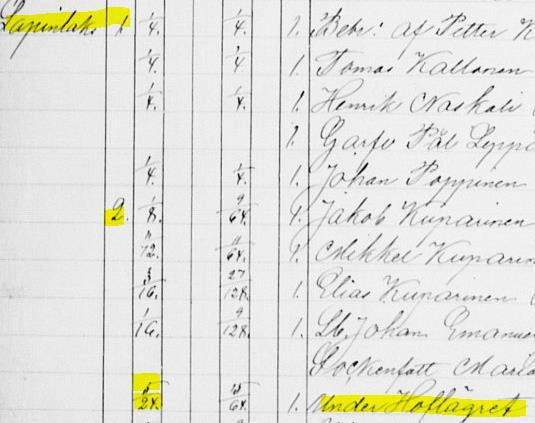 Lapinlaks 1. 1/4. 1/4. 1. Bebr: af Petter K
1/4. 1/4. 1. Tomas Kallonen
1/4. 1/4. 1. Henrik Naskali
1. Pål Leppä
1/4. 1/4. 1. Johan Poppinen
2. 1/8. 9/64. 1. Jakob Kuparinen
11/72. 11/64. 1. Mikkel Kuparin
3/16. 27/128. 1. Elias Kuparinen
1/16. 9/128. 1. Johan Emanue
Sockenfatt Maria
5/24. 15/64. 1. Under Hoflägret